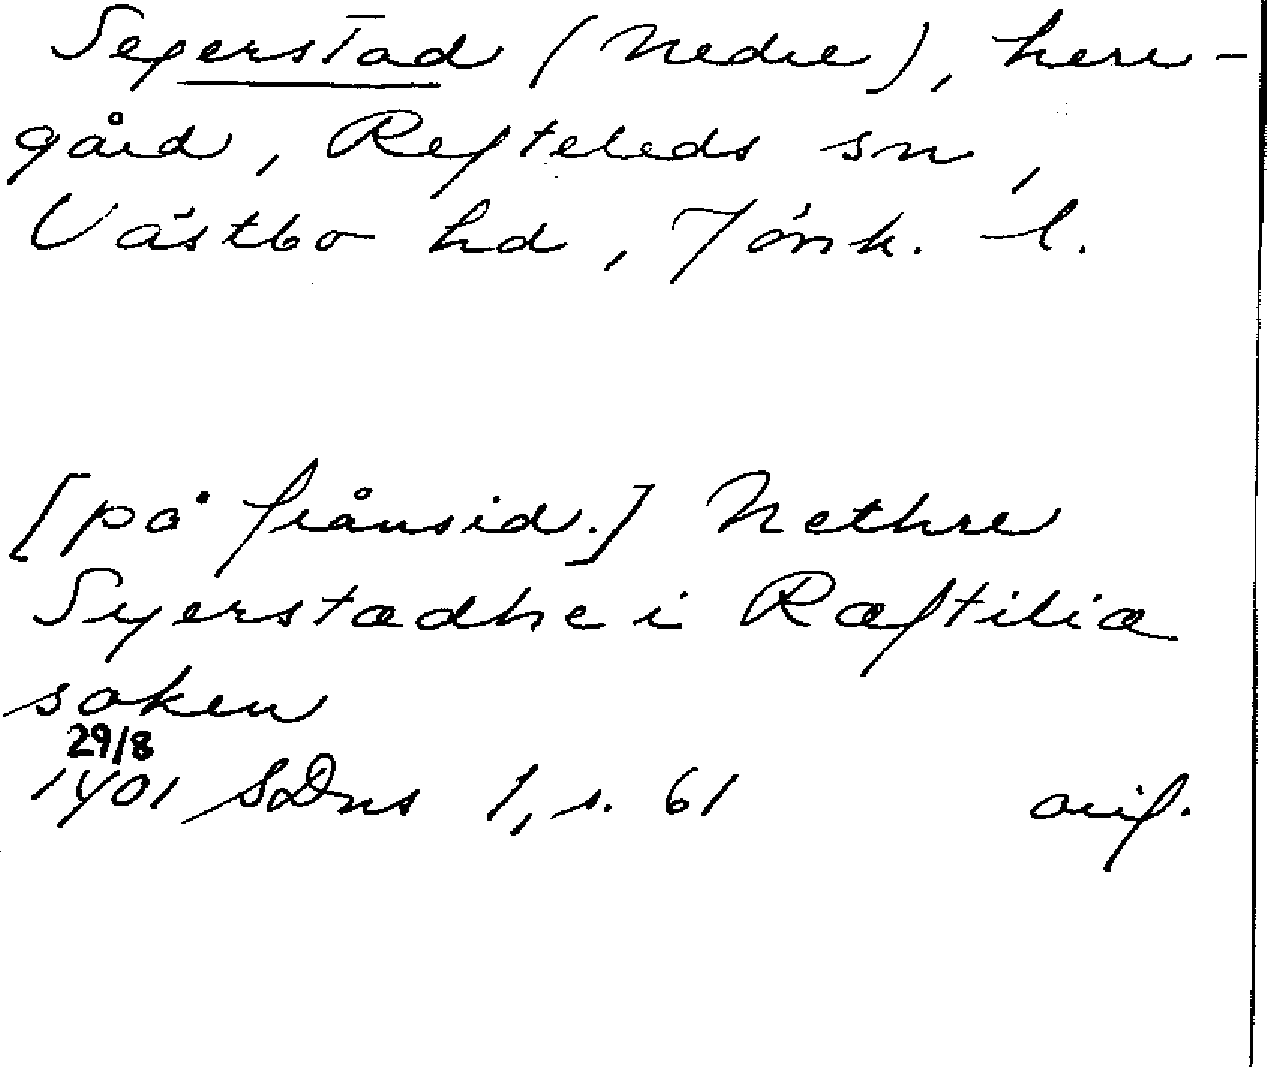 Segerstad (Nedre), herr-
gård, Refteleds sn,
Västbo hd, Jönk. l.
[på frånsid.] Nethre
Syerstædhe i Ræftilia
soken
29/8
1401 SDns 1, s. 61 orig.